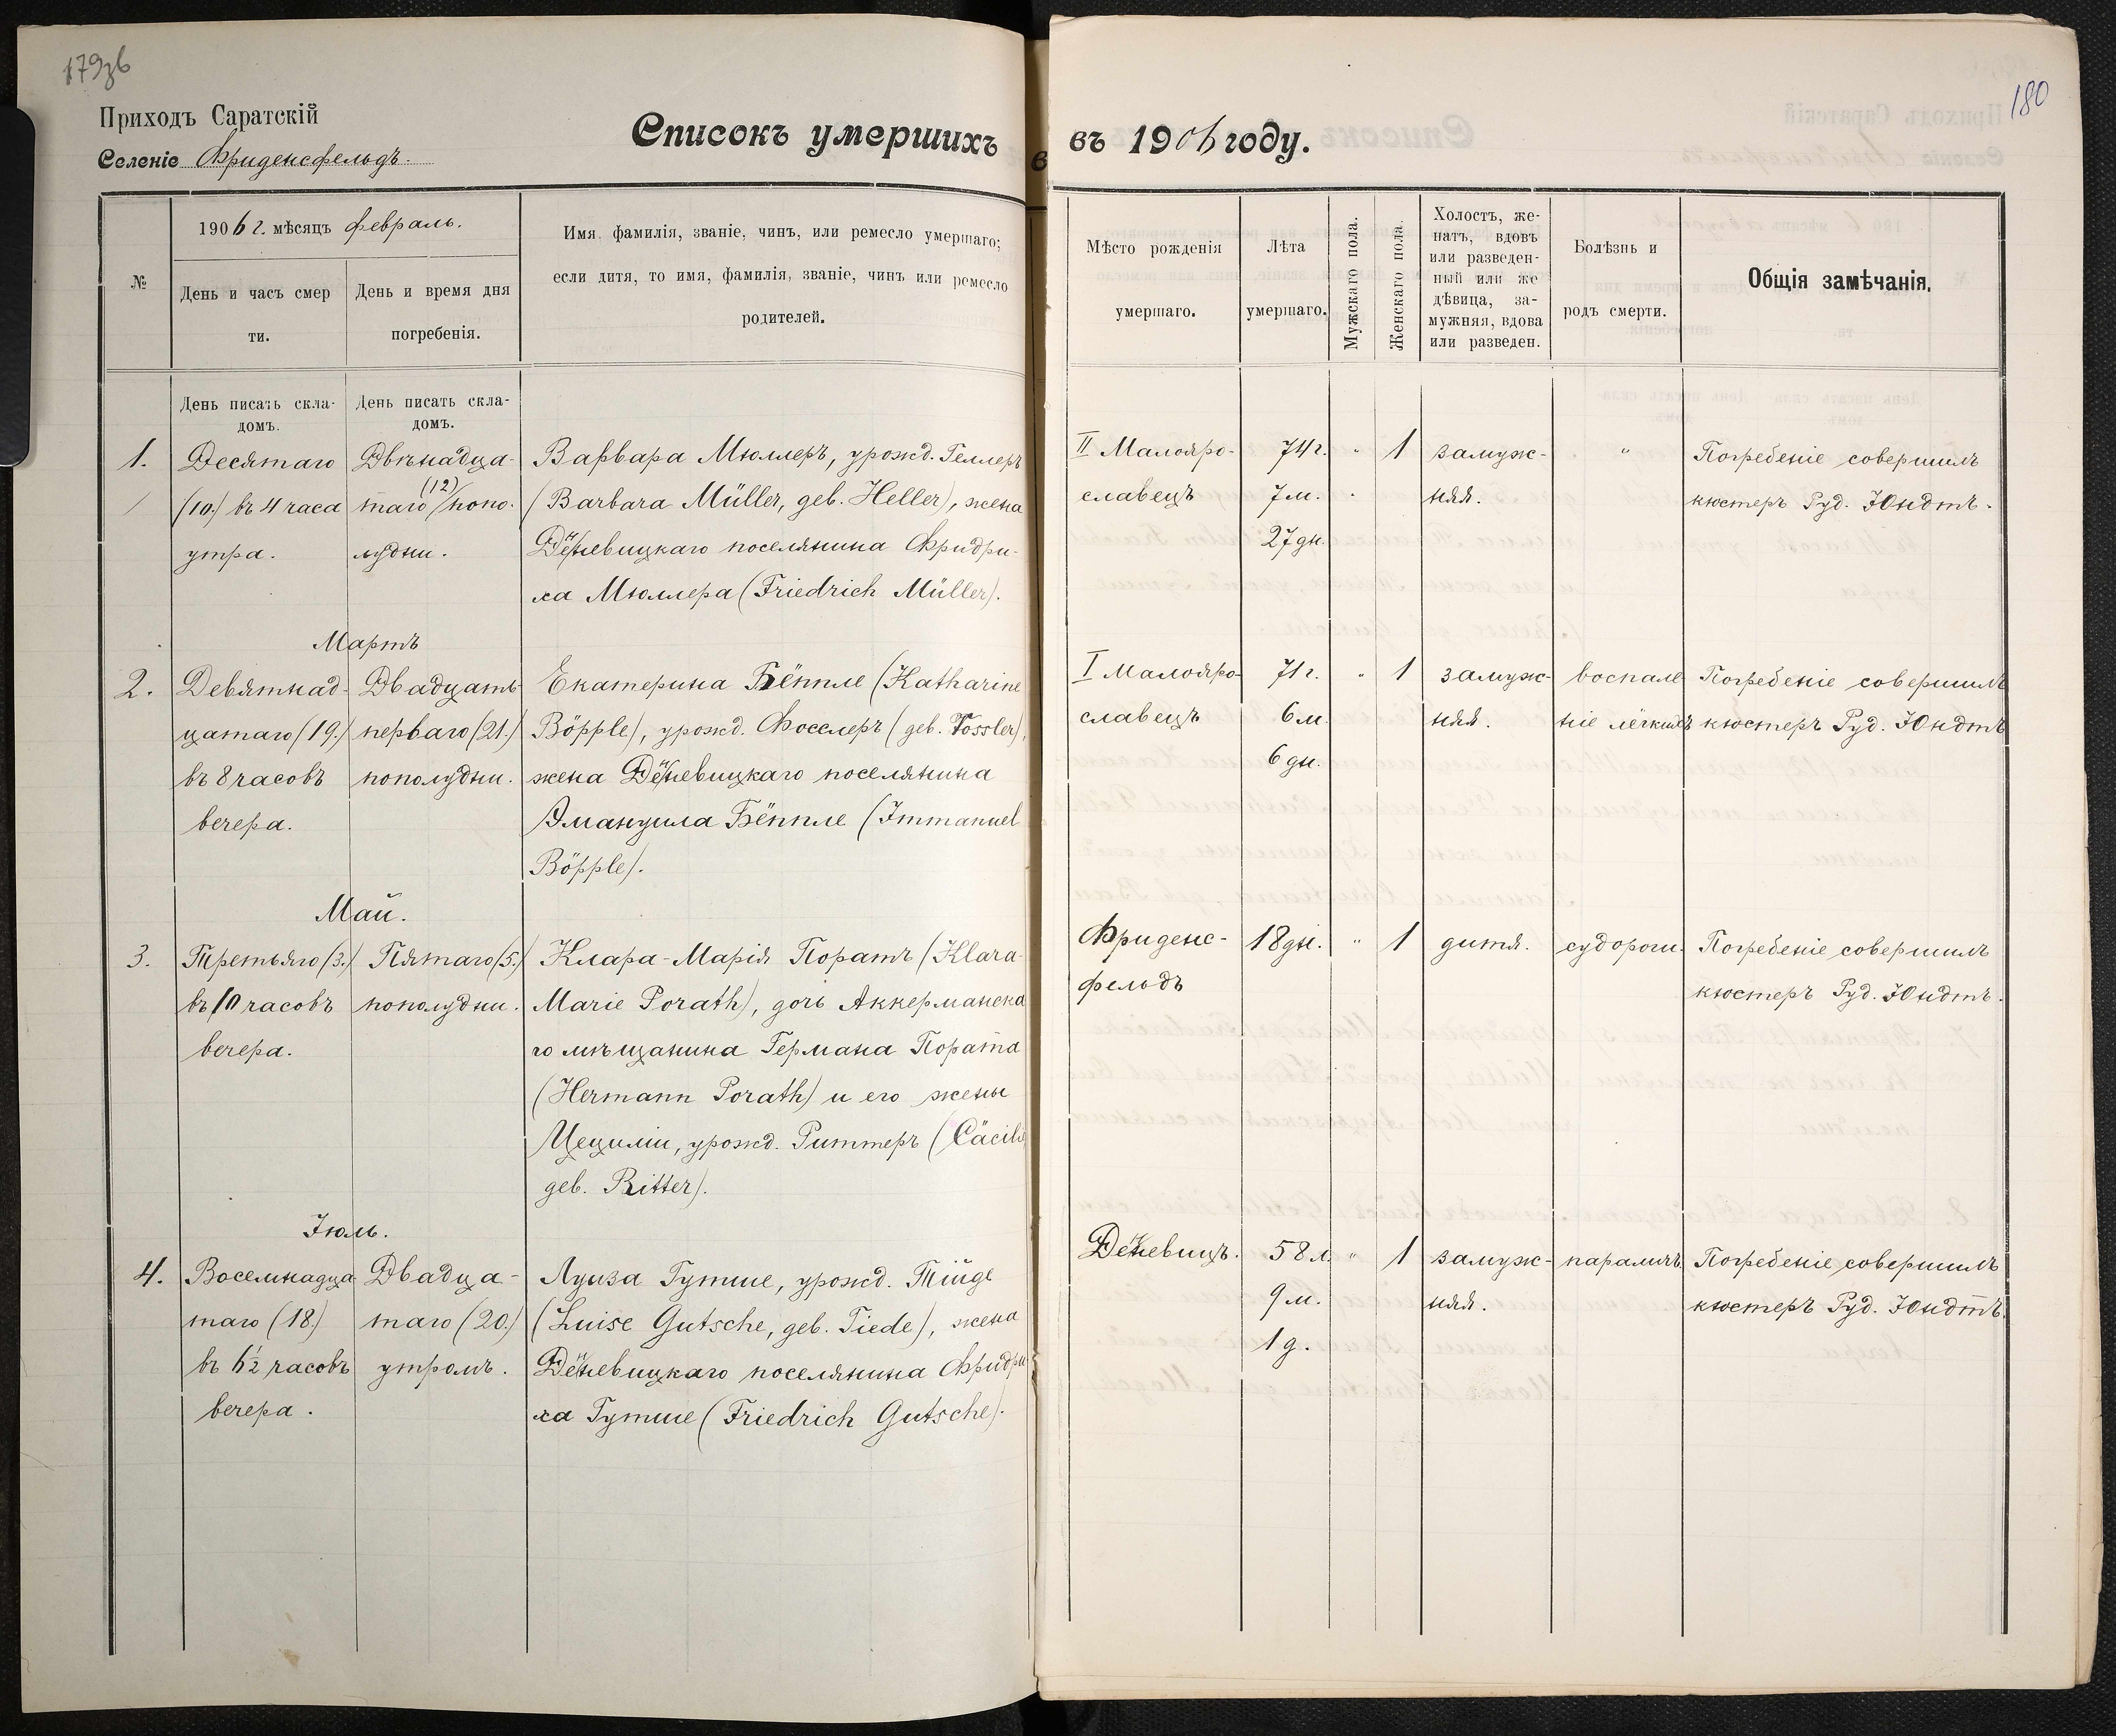 179зв
180
Приходъ Саратскій
Селеніе Фриденсфельдъ.
Списокъ умершихъ въ 1906 году.
№
1906 г. мѣсяцъ февраль.
День и часъ смер
ти.
День и время дня
погребенія.
Имя, фамилія, званіе, чинъ, или ремесло умершаго;
если дитя, то имя, фамилія, званіе, чинъ или ремесло
родителей.
Мѣсто рожденія
умершаго.
Лѣта
умершаго.
Мужскаго пола.
Женскаго пола.
Холостъ, же-
натъ, вдовъ
или разведен-
ный или же
дѣвица, за-
мужняя, вдова
или разведен.
Болѣзнь и
родъ смерти.
Общія замѣчанія.
День писать скла-
домъ.
День писать скла-
домъ.
1.
Десятаго
(10.) въ 4 часа
утра.
Двѣнадца-
таго (12) попо-
лудни.
Варвара Мюллеръ, урожд. Геллеръ
(Barbara Müller, geb. Heller), жена
Денневицкаго поселянина Фридри-
ха Мюллера (Friedrich Müller).
II Малояро-
славецъ
74 г.
7 м.
27 дн.
" 1
замуж-
няя.
"
Погребеніе совершилъ
кюстеръ Руд. Юндтъ.
Мартъ
2.
Девятнад-
цатаго (19.)
въ 8 часовъ
вечера.
Двадцать
перваго (21.)
пополудни.
Екатерина Бёппле (Katharine
Böpple), урожд. Фосслеръ (geb. Vossler),
жена Денневицкаго поселянина
Эмануила Бёппле (Immanuel
Böpple).
I Малояро-
славецъ
71 г.
6 м.
6 дн.
" 1
замуж-
няя.
воспале
ніе лёгкихъ
Погребеніе совершилъ
кюстеръ Руд. Юндтъ
Май.
3.
Третьяго (3.)
въ 10 часовъ
вечера.
Пятаго (5.)
пополудни.
Клара-Марія Поратъ (Klara-
Marie Porath), дочь Аккерманска
го мѣщанина Германа Пората
(Hermann Porath) и его жены
Цециліи, урожд. Риттеръ (Cäcilie,
geb. Ritter).
Фриденс-
фельдъ
18 дн.
" 1
дитя.
судороги.
Погребеніе совершилъ
кюстеръ Руд. Юндтъ.
Іюль.
4.
Восемнадца
таго (18.)
въ 6½ часовъ
вечера.
Двадца-
таго (20.)
утромъ.
Луиза Гутше, урожд. Тиде
(Luise Gutsche, geb. Tiede), жена
Денневицкаго поселянина Фридри
ха Гутше (Friedrich Gutsche).
Денневицъ.
58 л.
9 м.
1 д.
" 1
замуж-
няя.
параличъ
Погребеніе совершилъ
кюстеръ Руд. Юндтъ.